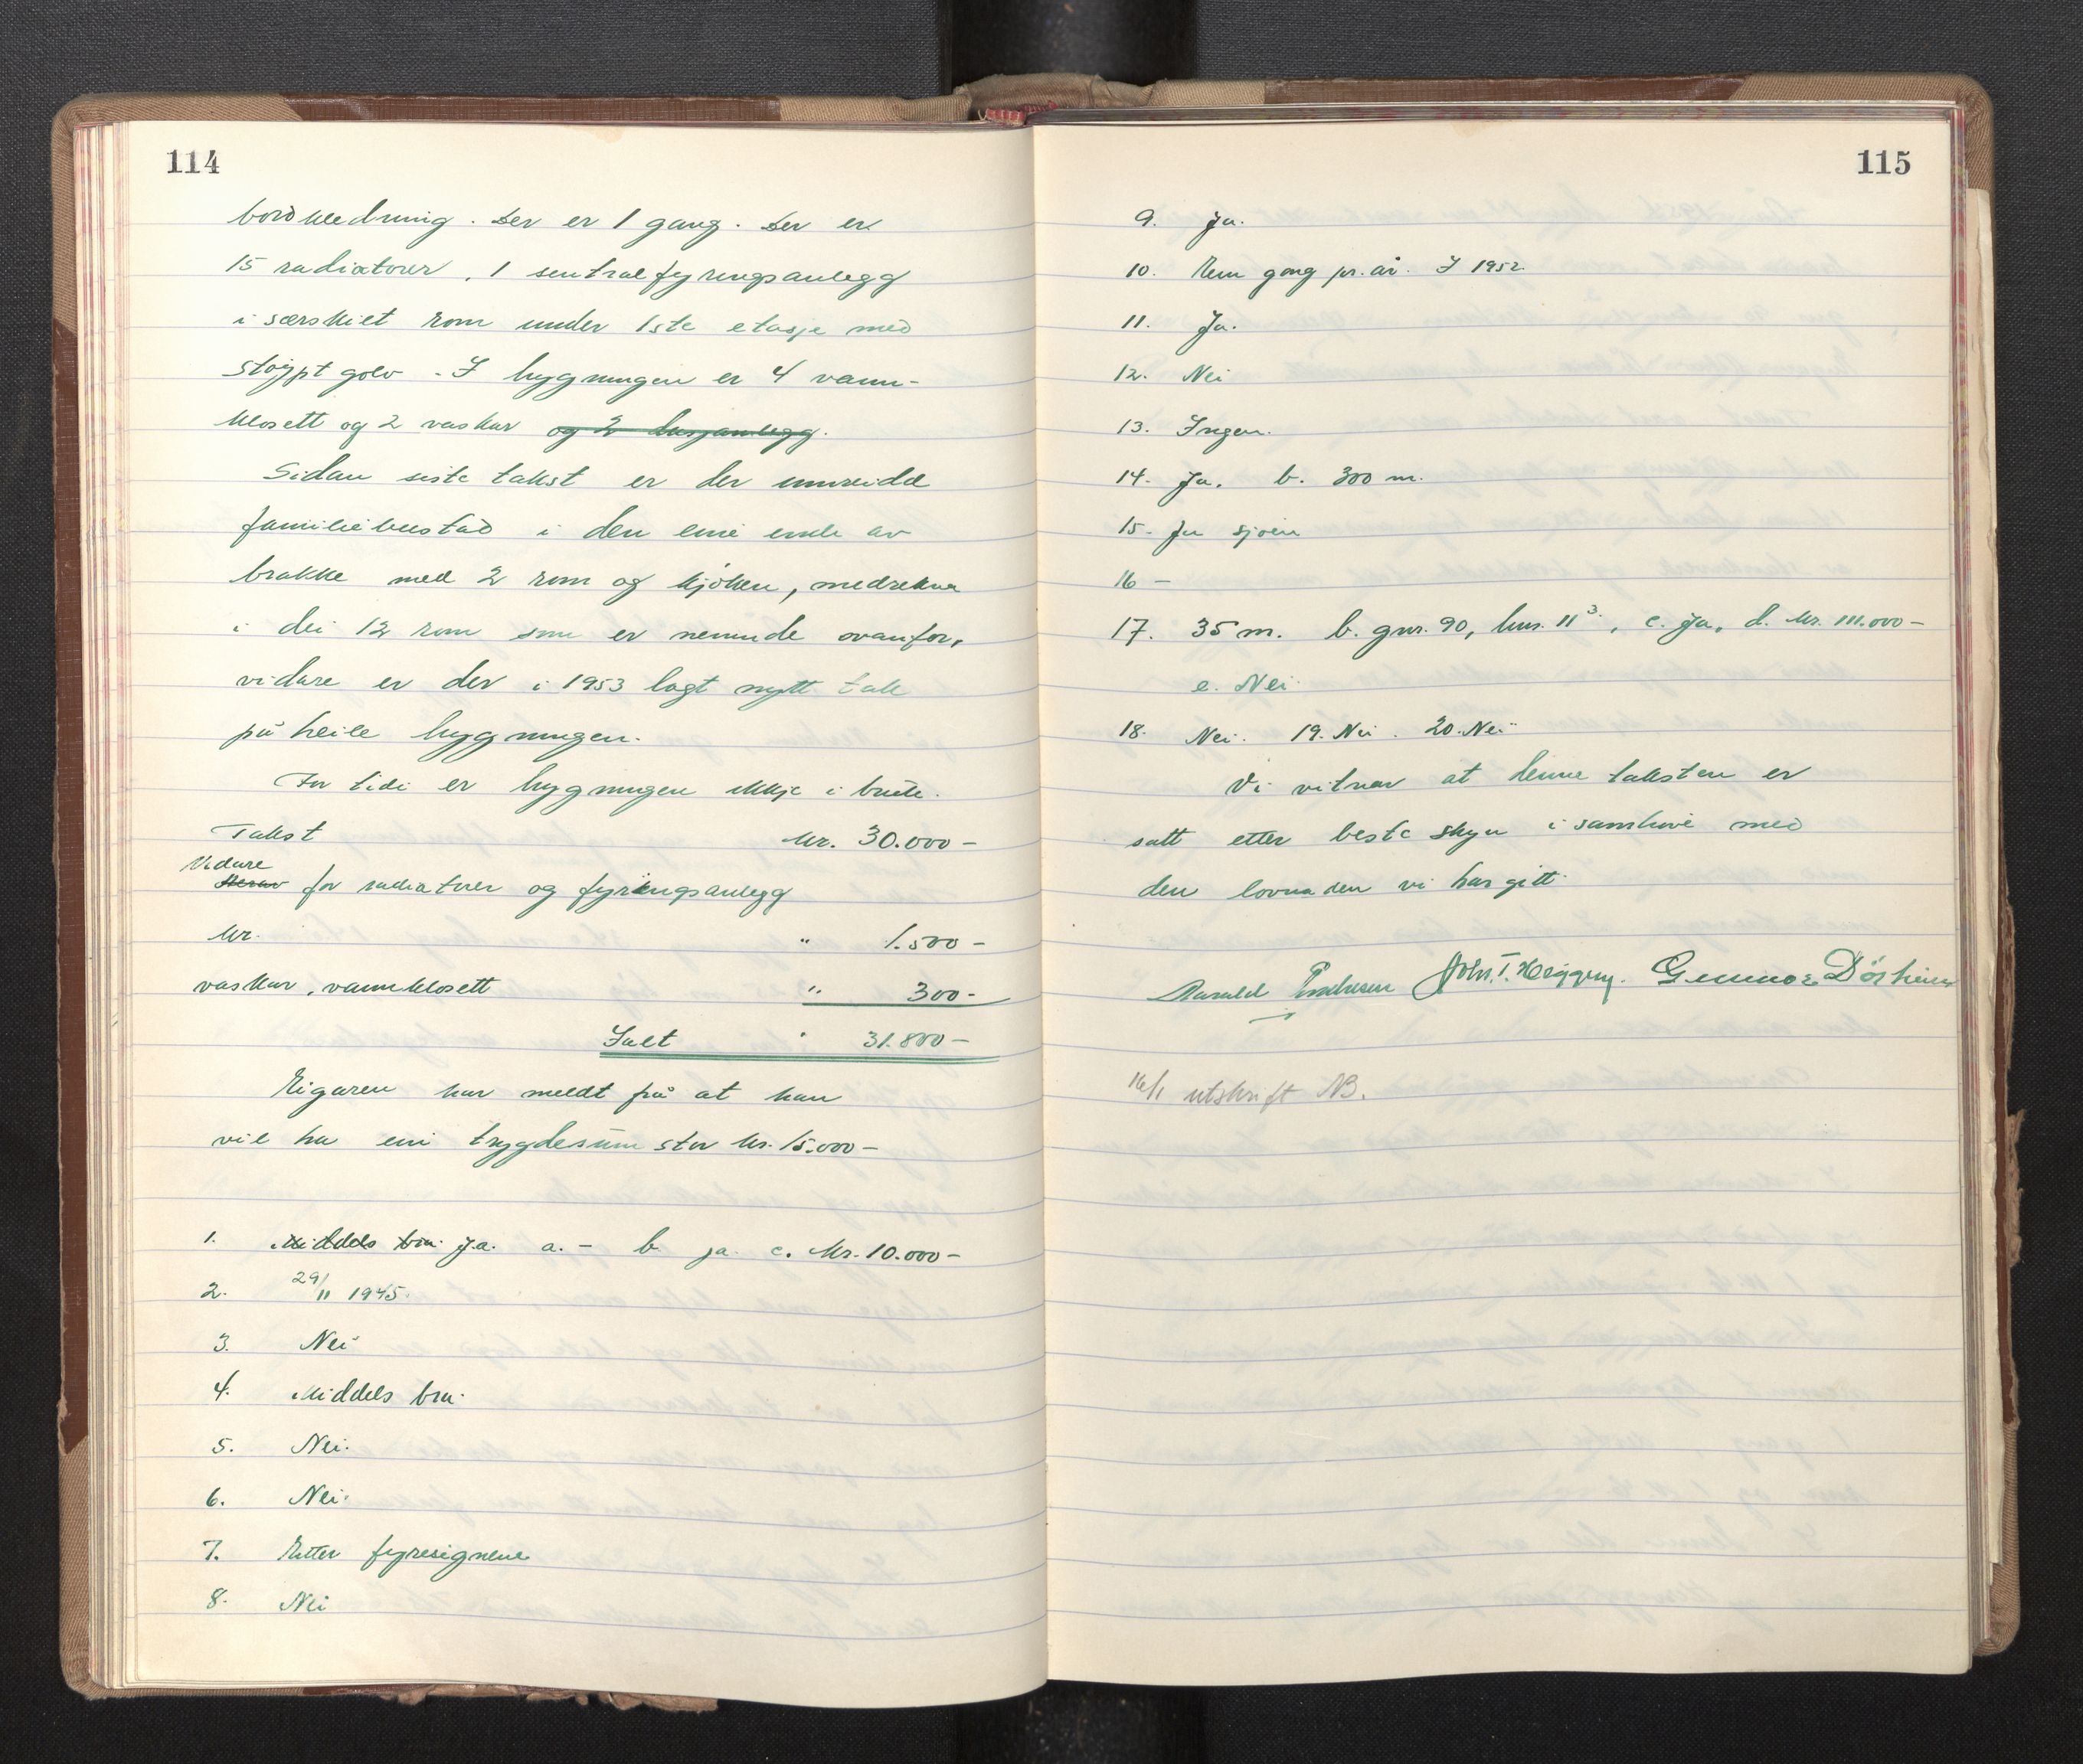 114
bordkledning. Der er 1 gang. Der er
15 radiatorer, 1 sentralfyringsanlegg
i særskilt rom under 1ste etasje med
støypt golv - I bygningen er 4 vann-
klosett og 2 vaskar og 2 dusjanlegg.
Sidan siste takst er der innreidd
familiebustad i den eine ende av
brakke med 2 rom og kjøken, medrekna
i dei 12 rom som er nemnde ovanfor,
vidare er der i 1953 lagt nytt tak
på heile bygningen.
For tidi er bygningen ikkje i bruk.
Takst kr. 30.000 -
Vidare
Herav for radiatorer og fyringsanlegg
kr. " 1.500 -
vaskar, vannklosett " 300 -
Ialt " 31.800 -
Eigaren har meldt frå at han
vil ha ein trygdesum stor kr. 15.000 -
1. Middels bra. Ja. a. - b. ja. c. kr. 10.000 -
2. 29/11 1945.
3. Nei
4. Middels bra.
5. Nei.
6. Nei.
7. Etter fyresegnene
8. Nei
115
9. Ja.
10. Ein gong pr. år. I 1952.
11. Ja.
12. Nei
13. Ingen.
14. Ja. b. 300 m.
15. Ja sjøen
16 -
17. 35 m. b. gnr. 90, bnr. 11³, c. Ja, d. kr. 111.000 -
e. Nei.
18. Nei. 19. Nei. 20. Nei
Vi vitnar at denne taksten er
satt etter beste skyn i samhøve med
den lovnaden vi har gitt.
Harald Joh. T. Heggøy. Gunnar Dörheim
16/1 utskrift NB.